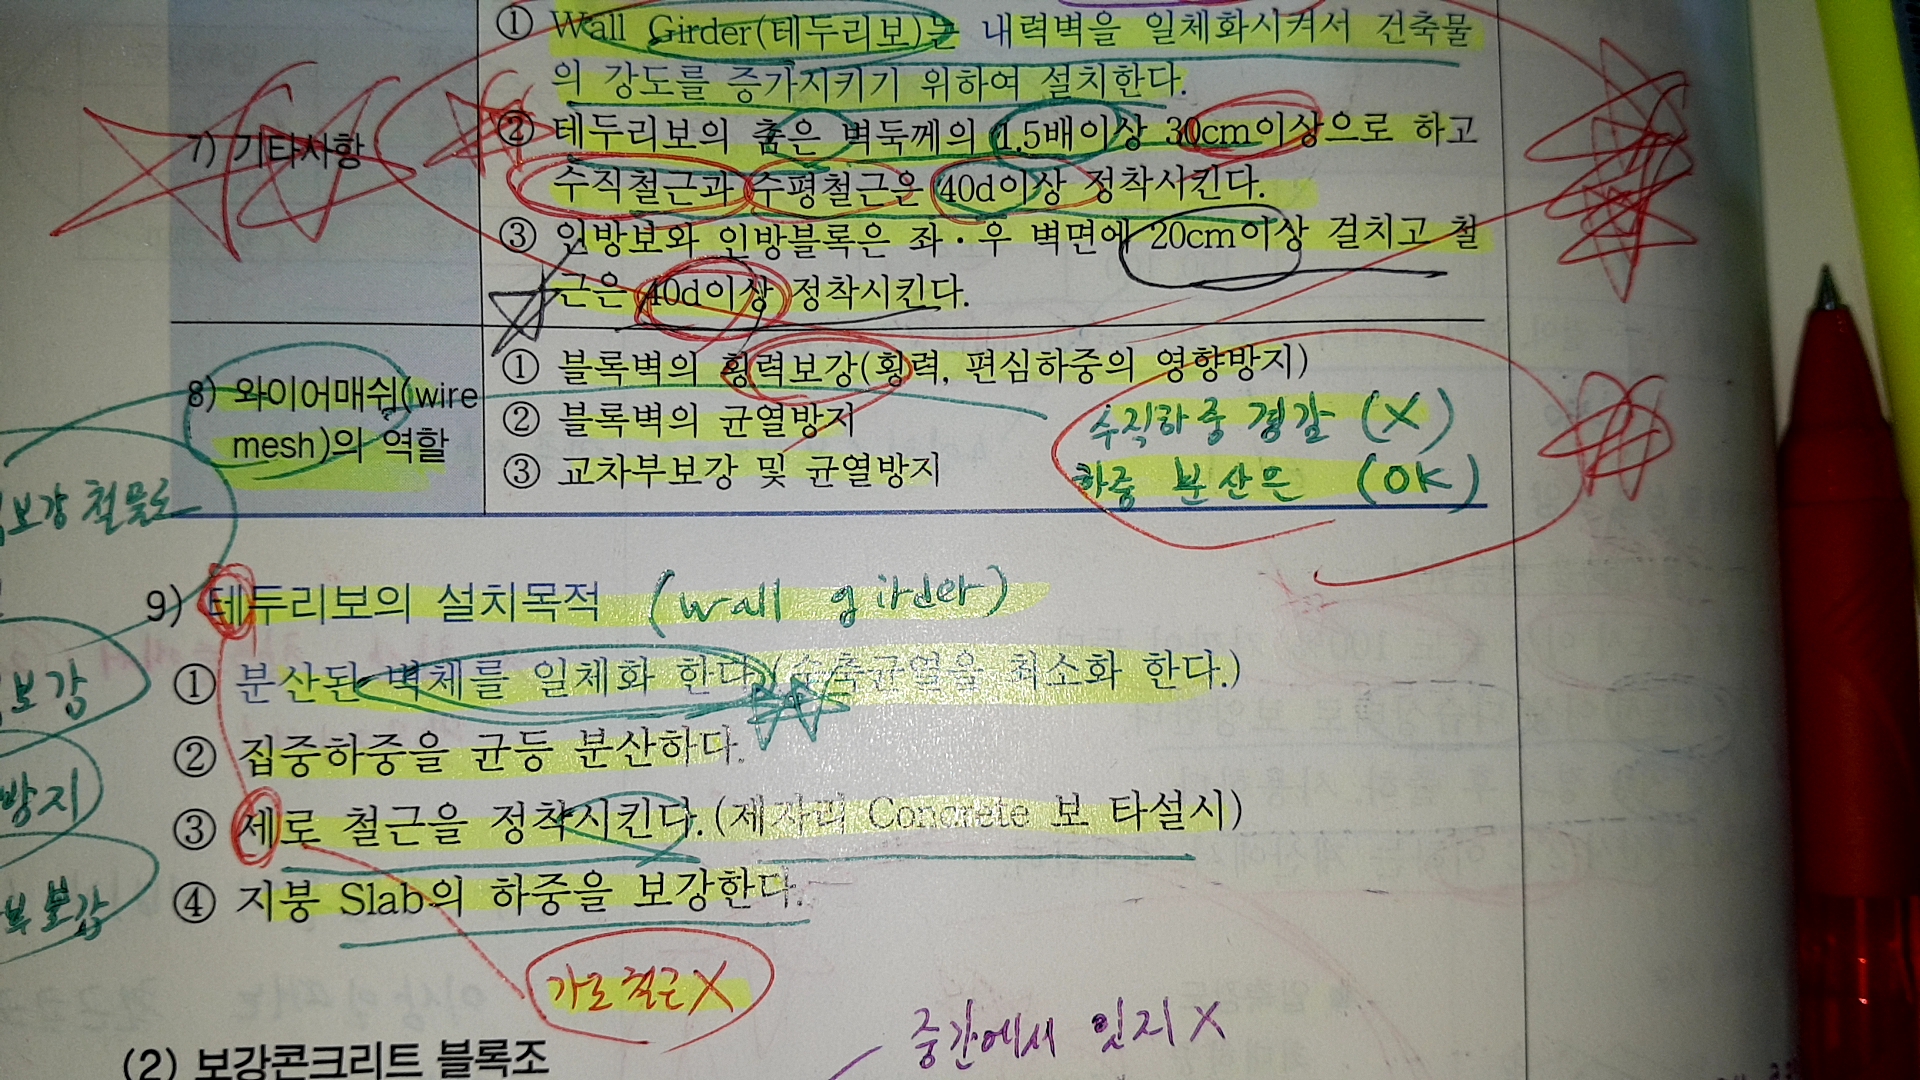 ① Wall Girder(테두리보)는 내력벽을 일체화시켜서 건축물
의 강도를 증가지키기 위하여 설치한다.
7) 기타사항
② 테두리보의 춤은 벽둑께의 1.5배이상 30cm이상으로 하고
수직철근과 수평철근은 40d이상 정착시킨다.
③ 인방보와 인방블록은 좌·우 벽면에 20cm이상 걸치고 철
근은 40d이상 정착시킨다.
8) 와이어매쉬(wire
mesh)의 역할
① 블록벽의 횡력보강(횡력, 편심하중의 영향방지)
② 블록벽의 균열방지
③ 교차부보강 및 균열방지
수직하중 경감 (X)
하중 분산은 (OK)
보강 철물로
9) 테두리보의 설치목적 (wall girder)
① 분산된 벽체를 일체화 한다.(수축균열을 최소화 한다.)
보강
② 집중하중을 균등 분산하다.
방지
③ 세로 철근을 정착시킨다.(제자리 Concrete 보 타설시)
④ 지붕 Slab의 하중을 보강한다.
보강
가로철근X
중간에서 잇지 X
(2) 보강콘크리트 블록조